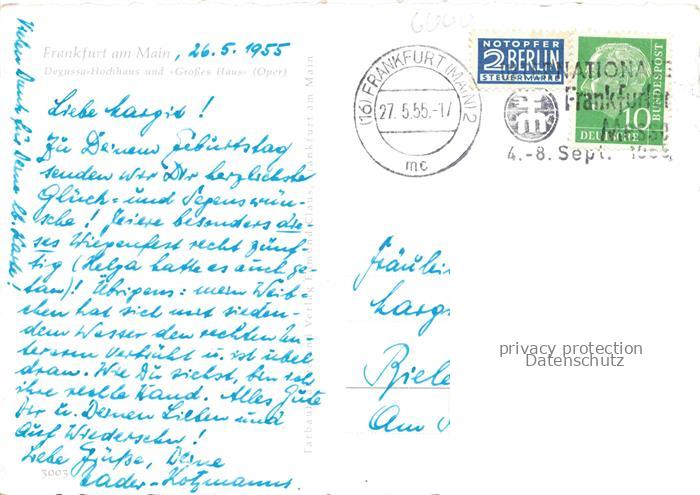 Frankfurt am Main, 26.5.1955
Degussa-Hochhaus und »Großes Haus« (Oper)
Liebe Margit!
Zu Deinem Geburtstag
senden wir Dir herzlichste
Glück- und Segenswün-
sche! Feiere besonders die-
ses Wiegenfest recht zünf-
tig (Helga hatte es auch ge-
tan)! Übrigens: mein Weib-
chen hat sich mit sieden-
dem Wasser den rechten Un-
terarm verbrüht u. ist übel
dran. Wie Du siehst, bin ich
ihre rechte Hand. Alles Gute
Dir u. Deinen Lieben und
Auf Wiedersehn!
Liebe Grüße, Deine
3003
Vielen Dank für Deine lb. Karte!
6000
NOTOPFER
2 BERLIN
STEUERMARKE
(16) FRANKFURT (MAIN) 2
27.5.55.-17
mc
INTERNATIONALE
Frankfurter
Messe
4.-8. Sept. 1955
10
DEUTSCHE
BUNDESPOST
Fräulein
Marg
Biele
Am
privacy protection
Datenschutz